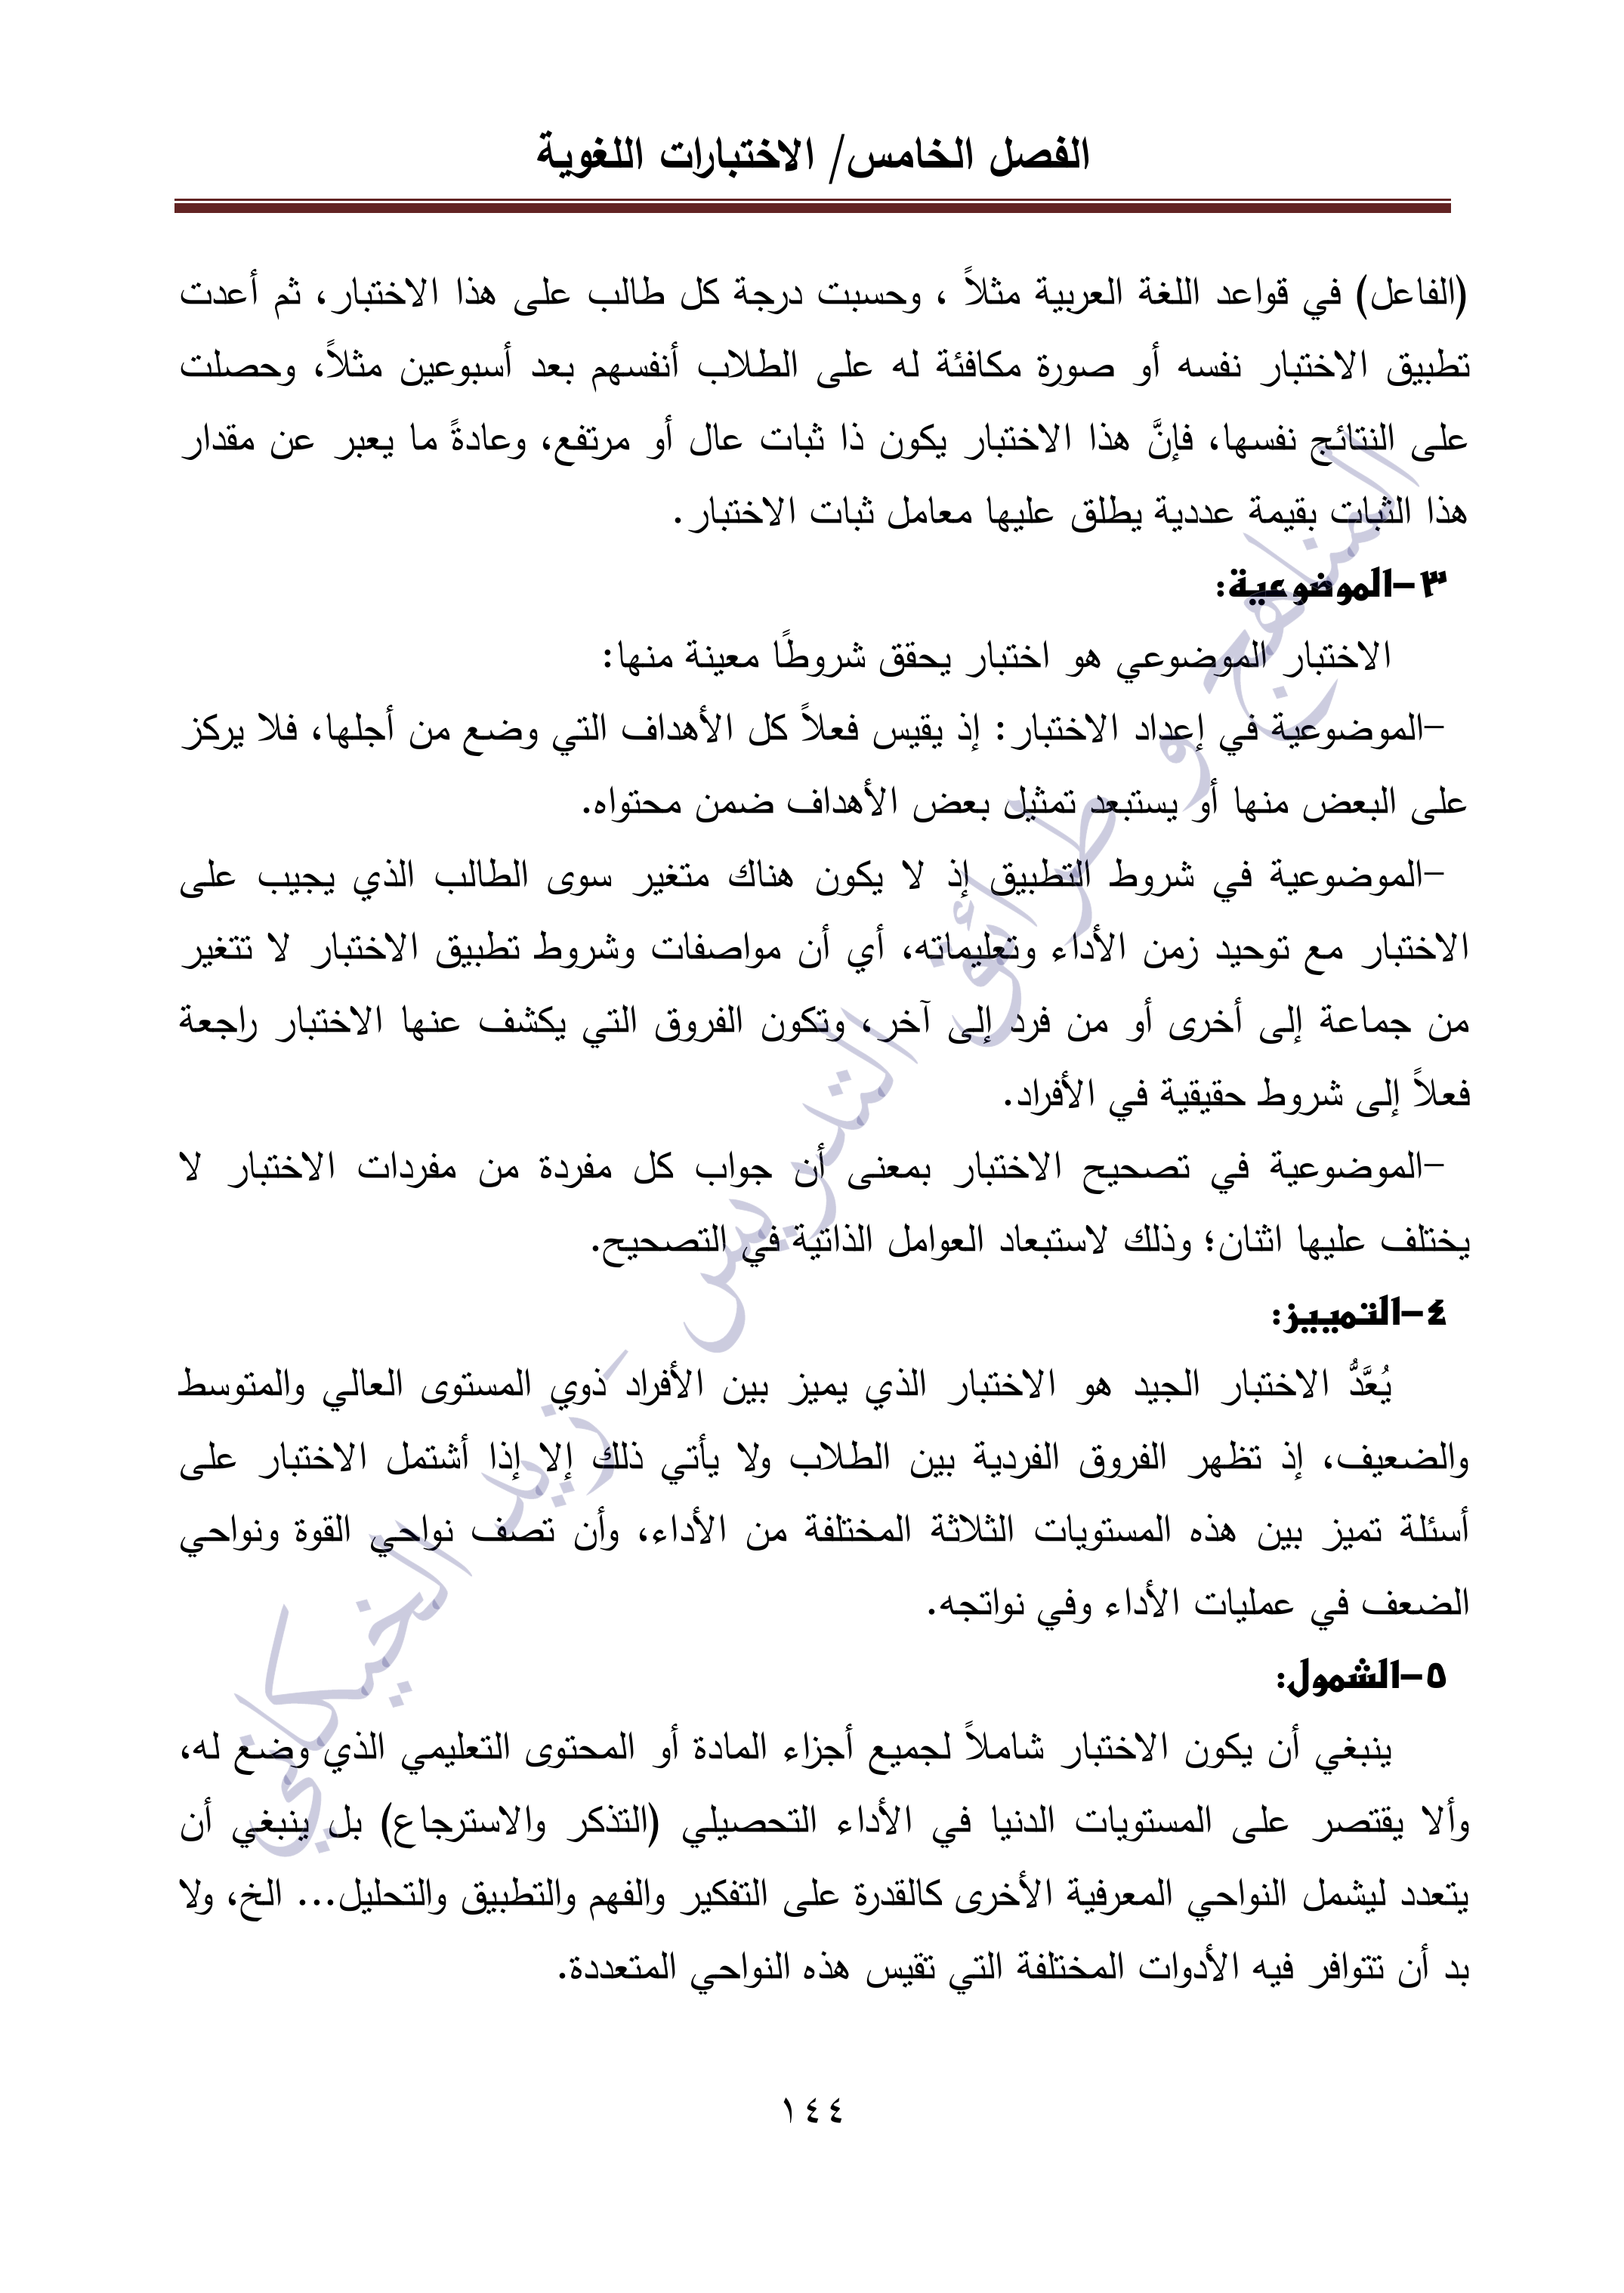 الفصل الخامس/ الاختبارات اللغوية
(الفاعل) في قواعد اللغة العربية مثلاً ، وحسبت درجة كل طالب على هذا الاختبار، ثم أعدت
تطبيق الاختبار نفسه أو صورة مكافئة له على الطلاب أنفسهم بعد أسبوعين مثلاً، وحصلت
على النتائج نفسها، فإنَّ هذا الاختبار يكون ذا ثبات عال أو مرتفع، وعادةً ما يعبر عن مقدار
هذا الثبات بقيمة عددية يطلق عليها معامل ثبات الاختبار.
٣-الموضوعية:
الاختبار الموضوعي هو اختبار يحقق شروطًا معينة منها:
-الموضوعية في إعداد الاختبار: إذ يقيس فعلاً كل الأهداف التي وضع من أجلها، فلا يركز
على البعض منها أو يستبعد تمثيل بعض الأهداف ضمن محتواه.
-الموضوعية في شروط التطبيق إذ لا يكون هناك متغير سوى الطالب الذي يجيب على
الاختبار مع توحيد زمن الأداء وتعليماته، أي أن مواصفات وشروط تطبيق الاختبار لا تتغير
من جماعة إلى أخرى أو من فرد إلى آخر، وتكون الفروق التي يكشف عنها الاختبار راجعة
فعلاً إلى شروط حقيقية في الأفراد.
-الموضوعية في تصحيح الاختبار بمعنى أن جواب كل مفردة من مفردات الاختبار لا
يختلف عليها اثنان؛ وذلك لاستبعاد العوامل الذاتية في التصحيح.
٤-التمييز:
يُعَّدُّ الاختبار الجيد هو الاختبار الذي يميز بين الأفراد ذوي المستوى العالي والمتوسط
والضعيف، إذ تظهر الفروق الفردية بين الطلاب ولا يأتي ذلك إلا إذا أشتمل الاختبار على
أسئلة تميز بين هذه المستويات الثلاثة المختلفة من الأداء، وأن تصف نواحي القوة ونواحي
الضعف في عمليات الأداء وفي نواتجه.
٥-الشمول:
ينبغي أن يكون الاختبار شاملاً لجميع أجزاء المادة أو المحتوى التعليمي الذي وضع له،
وألا يقتصر على المستويات الدنيا في الأداء التحصيلي (التذكر والاسترجاع) بل ينبغي أن
يتعدد ليشمل النواحي المعرفية الأخرى كالقدرة على التفكير والفهم والتطبيق والتحليل... الخ، ولا
بد أن تتوافر فيه الأدوات المختلفة التي تقيس هذه النواحي المتعددة.
١٤٤
المناهج و طرائق التدريس - زيد الخيكاني